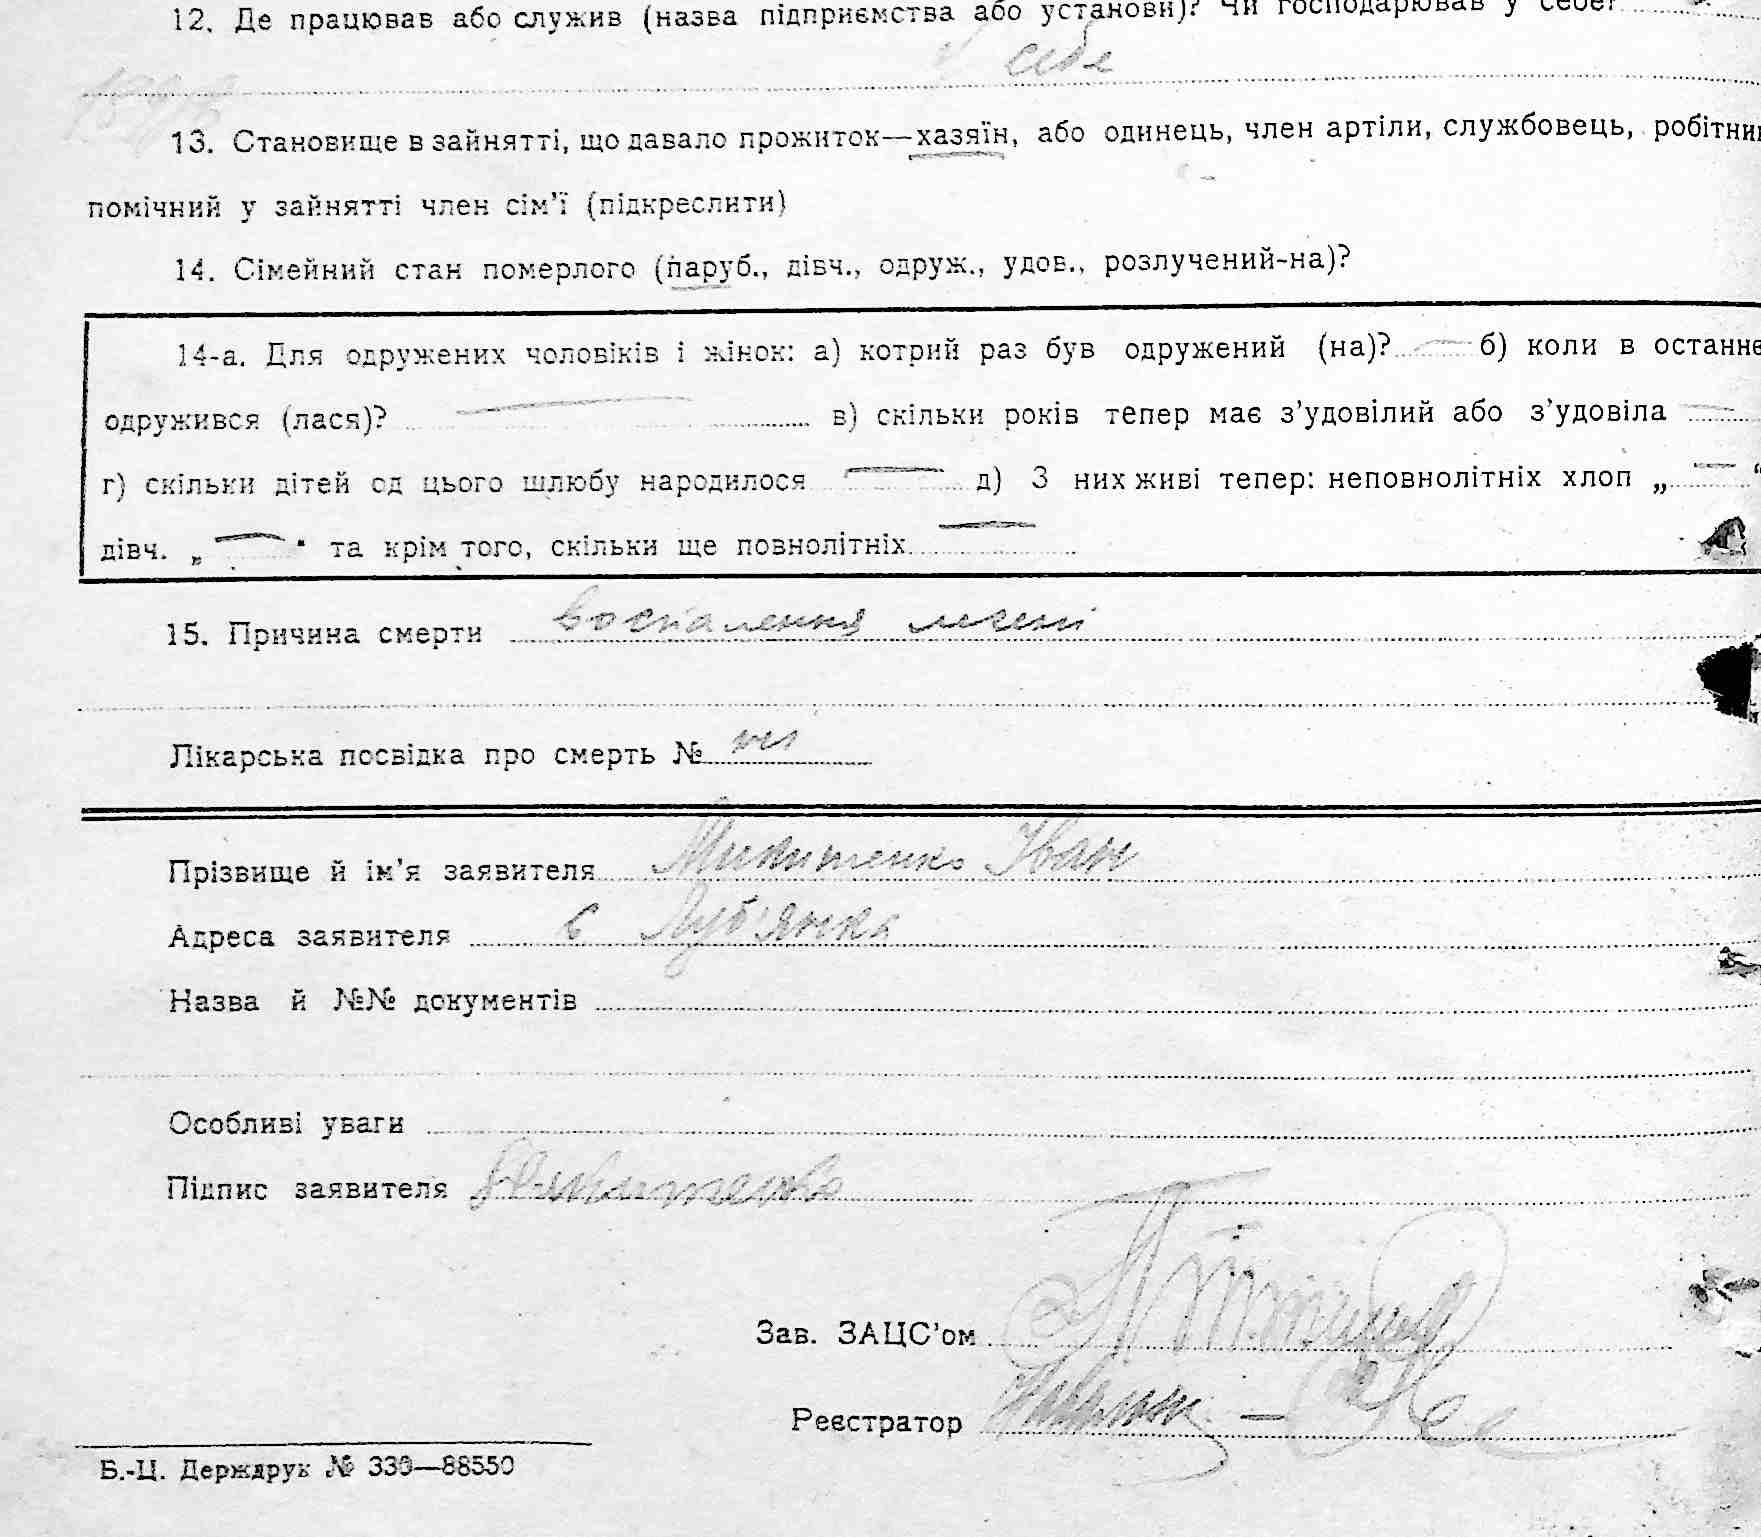 12. Де працював або служив (назва підприємства або установи)? Чи господарював у себе?
у себе
13. Становище в зайнятті, що давало прожиток—хазяїн, або одинець, член артіли, службовець, робітник
помічний у зайнятті член сім’ї (підкреслити)
14. Сімейний стан померлого (паруб., дівч., одруж., удов., розлучений-на)?
14-а. Для одружених чоловіків і жінок: а) котрий раз був одружений (на)? — б) коли в останнє
одружився (лася)? — в) скільки років тепер має з’удовілий або з’удовіла —
г) скільки дітей од цього шлюбу народилося — д) З них живі тепер: неповнолітніх хлоп „ — “
дівч. „ — “ та крім того, скільки ще повнолітніх —
15. Причина смерти воспалення легені
Лікарська посвідка про смерть №
Прізвище й ім’я заявителя Микитенко Іван
Адреса заявителя с Луб'янка
Назва й №№ документів
Особливі уваги
Підпис заявителя Микитенко
Зав. ЗАЦС’ом
Реєстратор
Б.-Ц. Держдрук № 330—88550